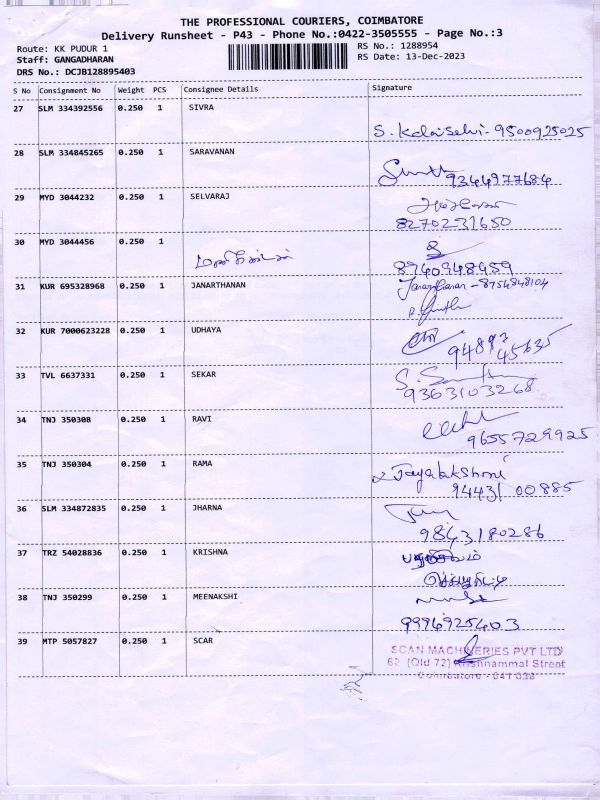 THE PROFESSIONAL COURIERS, COIMBATORE
Delivery Runsheet - P43 - Phone No.:0422-3505555 - Page No.:3
Route: KK PUDUR 1
RS No.: 1288954
Staff: GANGADHARAN
RS Date: 13-Dec-2023
DRS No.: DCJB128895403
S No Consignment No Weight PCS Consignee Details Signature
27 SLM 334392556 0.250 1 SIVRA
S. Kalaiselvi - 9500925025
28 SLM 334845265 0.250 1 SARAVANAN
9344977684
29 MYD 3044232 0.250 1 SELVARAJ
8270231650
30 MYD 3044456 0.250 1
8940948959
31 KUR 695328968 0.250 1 JANARTHANAN Janarthanan - 8754848104
32 KUR 7000623228 0.250 1 UDHAYA
94897 45635
33 TVL 6637331 0.250 1 SEKAR
9363103268
34 TNJ 350308 0.250 1 RAVI
9655729925
35 TNJ 350304 0.250 1 RAMA
Jayalakshmi
94431 00885
36 SLM 334872835 0.250 1 JHARNA
9843180286
37 TRZ 54028836 0.250 1 KRISHNA
38 TNJ 350299 0.250 1 MEENAKSHI
9994925403
39 MTP 5057827 0.250 1 SCAR
SCAN MACHINERIES PVT LTD
62 (Old 72) Krishnammal Street
Coimbatore - 641 038